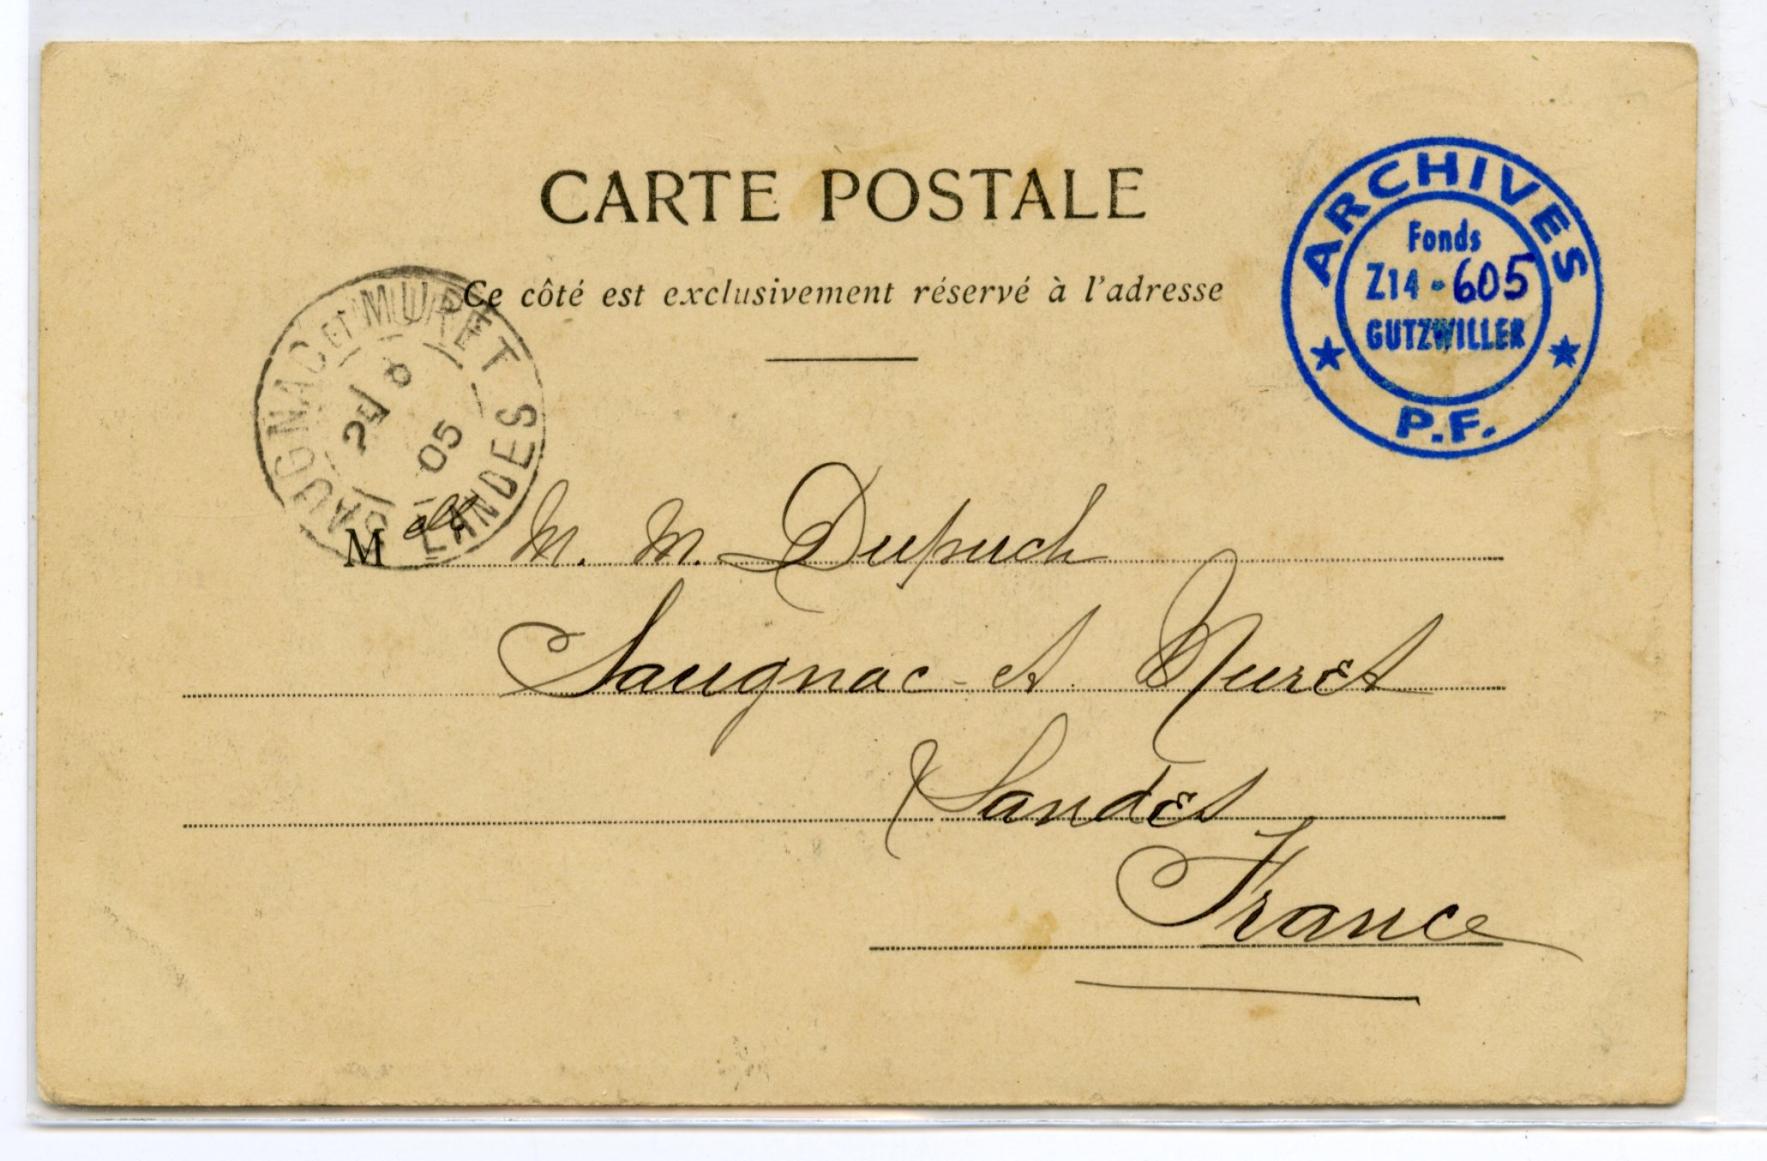 CARTE POSTALE
Ce côté est exclusivement réservé à l'adresse
ARCHIVES
Fonds
Z14-605
GUTZWILLER
P.F.
SAUGNAC ET MURET
25 8
05
LANDES
Melle M. M. Dupuch
Saugnac-et Muret
Landes
France